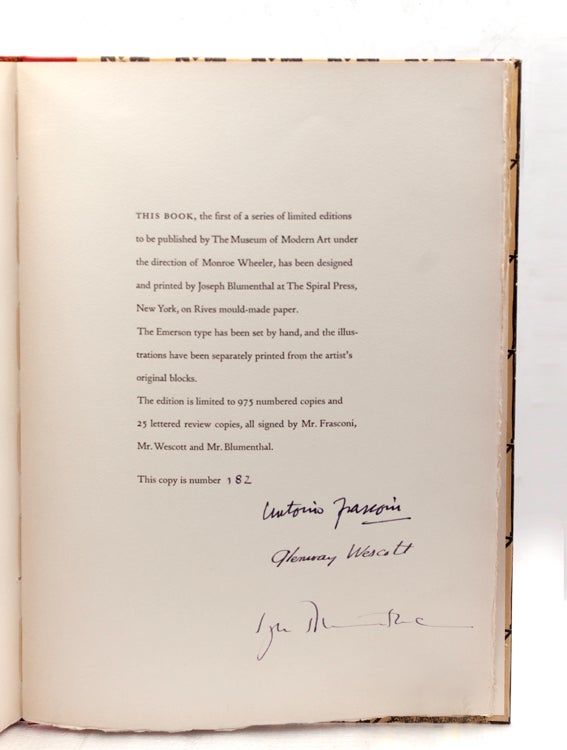 THIS BOOK, the first of a series of limited editions
to be published by The Museum of Modern Art under
the direction of Monroe Wheeler, has been designed
and printed by Joseph Blumenthal at The Spiral Press,
New York, on Rives mould-made paper.
The Emerson type has been set by hand, and the illus-
trations have been separately printed from the artist's
original blocks.
The edition is limited to 975 numbered copies and
25 lettered review copies, all signed by Mr. Frasconi,
Mr. Wescott and Mr. Blumenthal.
This copy is number 182
Antonio Frasconi
Glenway Wescott